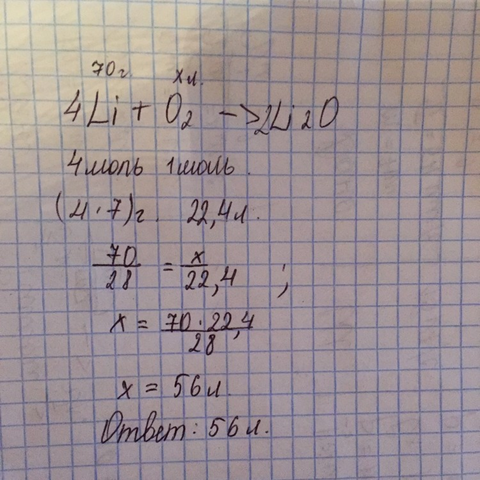 70г хл.
4Li + O2 -> 2Li2O
4 моль 1 моль.
(4·7)г. 22,4л.
70/28 = x/22,4 ;
x = 70·22,4/28
x = 56л
Ответ: 56л.